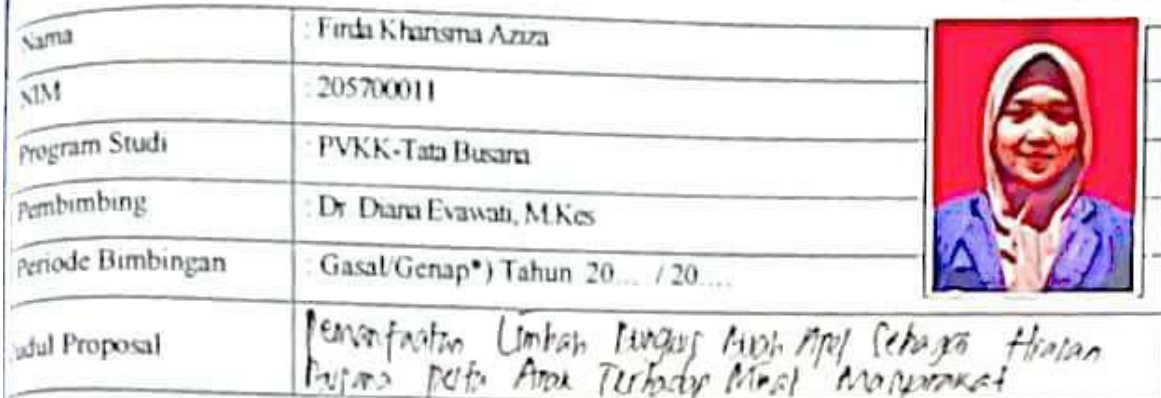 Nama : Firda Kharisma Aziza
NIM : 205700011
Program Studi : PVKK-Tata Busana
Pembimbing : Dr. Diana Evawati, M.Kes
Periode Bimbingan : Gasal/Genap*) Tahun 20... / 20....
Judul Proposal Pemanfaatan Limbah Bungkus Buah Apel Sebagai Hiasan
Busana Pesta Anak Terhadap Minat Masyarakat